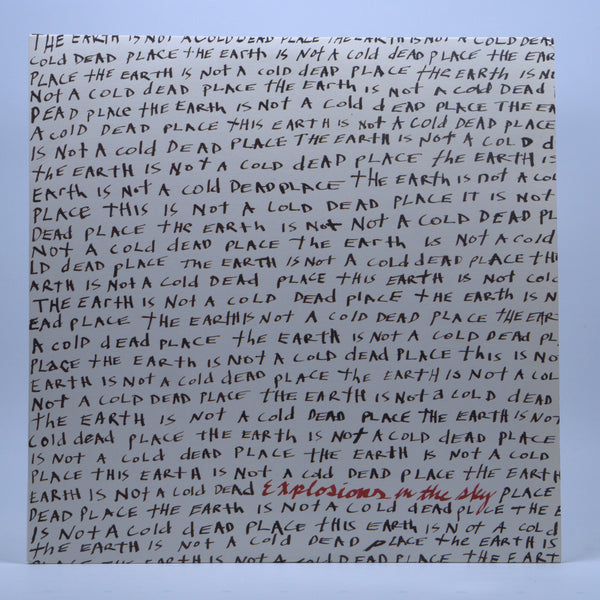 THE EARTH IS NOT A COLD DEAD PLACE THE EARTH IS NOT A COLD DEA
COLD DEAD PLACE tHE EARtH IS Not A cold dEAd PLACE THE EAR
PLACE tHE EARTH IS NOT A cold dEAD PLACE THE EARTH IS N
Not A COLD dEAd PLACE tHE EARtH IS Not A cold DEAd
DEAD PlAcE tHE EARtH IS Not A Cold d EAD PLACE THE EA
A COlD DEAD PLACE tHIS EARtH IS Not A COLD DEAD PLACE
IS Not A cold DEAD PLACE THE EARtH IS NOT A COLD d
tHE EARtH IS Not A COLD dEAD PLACE tHE EARtH IS
EARtH IS Not A Cold DEAD PLACE tHE EARtH IS not A Col
PLACE THIS IS Not A LOLD DEAD PLACE IT IS NOT
DEAd PLACE tHE EARtH IS Not Not A COLD DEAD PL
NOT A COLd dEAD PLACE tHE EARtH IS NOT A Cold
LD dEAD PLACE THE EARtH IS Not A cold dEAD PLACE tH
ARtH IS Not A Cold DEAd PLACE tHIS EARtH IS Not colc
THE EARtH IS Not A COLD DEAd PlACE tHE EARtH IS N
EAd PLACE tHE EARtH IS NOT A COLD DEAD PLACE THE EAR
A cold dEAd PLACE tHE EARtH IS Not A COLD DEAD PL
PLACE tHE EARtH IS Not A COLD dEAd PLACE tHIS IS No
EARtH IS Not A Cold dEAd PLACE tHE EARTH IS NOT A COL
Not A COLD DEAD PLACE THE EARtH IS NOT A COLD dEAD
tHE EARTH IS NOT A Cold DEAD PLACE THE EARtH IS NOT
COld dEAd PLACE tHE EARtH IS NOT A COLD dEAD PLACE
IS Not A cold DEAD PLACE tHE EARtH IS NOt A COLD
PLACE tHIS EARTH IS Not A cold DEAd PLACE tHE EARtH
EARtH IS NOt A COLD DEAd Explosions in the sky PLACE
DEAD PLACE tHE EARtH IS NOt A COLD dEAd PLACE tHE E
IS Not A cold dEAd PLACE tHIS EARtH IS Not A COLd
tHE EARTH IS NOt A COLD DEAD PLACE tHE EARtH IS NO
PLACE tHE EARtH IS NOT A COLD DEAD PLACE THE EART